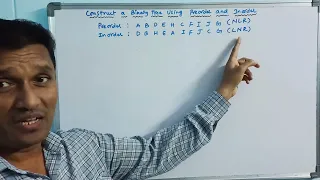 Construct a Binary Tree Using Preorder and Inorder
Preorder : A B D E H C F I J G (NLR)
Inorder : D B H E A I F J C G (LNR)